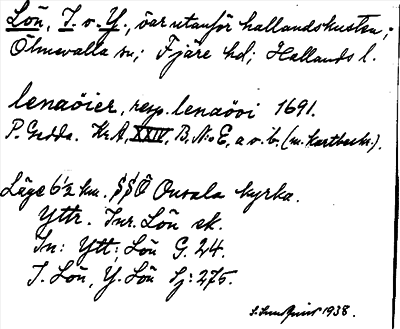 Lön, I. o. Y., öar utanför hallandskusten;
Ölmevalla sn; Fjäre hd; Hallands l.
lenaöier, resp. lenaöoi 1691.
P. Gedda. Kr A, XXIV, B, N:o E, a o. b. (m. kartbeskr.).
Läge 6½ km. SSÖ Onsala kyrka.
Yttr. Inr. Lön ek.
In: Ytt; Lön G. 24.
I. Lön, Y. Lön Sj: 275.
1938.